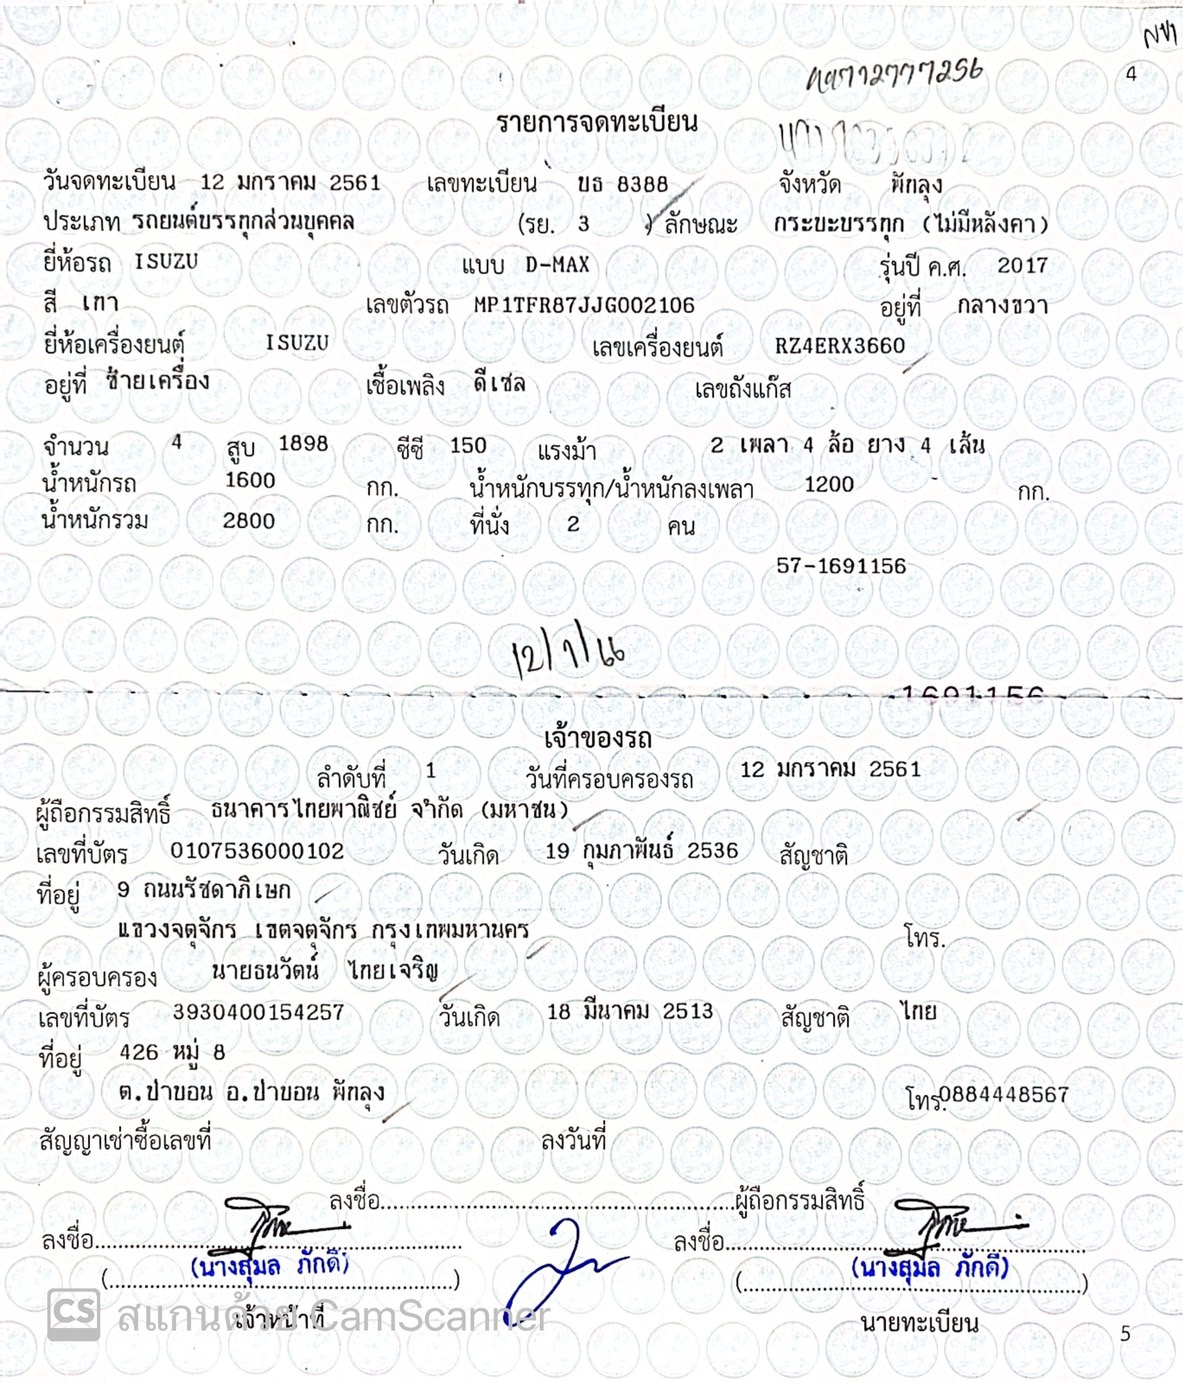 4
รายการจดทะเบียน
วันจดทะเบียน 12 มกราคม 2561 เลขทะเบียน บธ 8388 จังหวัด พัทลุง
ประเภท รถยนต์บรรทุกส่วนบุคคล (รย. 3 ) ลักษณะ กระบะบรรทุก (ไม่มีหลังคา)
ยี่ห้อรถ ISUZU แบบ D-MAX รุ่นปี ค.ศ. 2017
สี เทา เลขตัวรถ MP1TFR87JJG002106 อยู่ที่ กลางขวา
ยี่ห้อเครื่องยนต์ ISUZU เลขเครื่องยนต์ RZ4ERX3660
อยู่ที่ ซ้ายเครื่อง เชื้อเพลิง ดีเซล เลขถังแก๊ส
จำนวน 4 สูบ 1898 ซีซี 150 แรงม้า 2 เพลา 4 ล้อ ยาง 4 เส้น
น้ำหนักรถ 1600 กก. น้ำหนักบรรทุก/น้ำหนักลงเพลา 1200 กก.
น้ำหนักรวม 2800 กก. ที่นั่ง 2 คน
57-1691156
12/1/66
1691156
เจ้าของรถ
ลำดับที่ 1 วันที่ครอบครองรถ 12 มกราคม 2561
ผู้ถือกรรมสิทธิ์ ธนาคารไทยพาณิชย์ จำกัด (มหาชน)
เลขที่บัตร 0107536000102 วันเกิด 19 กุมภาพันธ์ 2536 สัญชาติ
ที่อยู่ 9 ถนนรัชดาภิเษก
แขวงจตุจักร เขตจตุจักร กรุงเทพมหานคร โทร.
ผู้ครอบครอง นายธนวัตน์ ไทยเจริญ
เลขที่บัตร 3930400154257 วันเกิด 18 มีนาคม 2513 สัญชาติ ไทย
ที่อยู่ 426 หมู่ 8
ต.ป่าบอน อ.ป่าบอน พัทลุง โทร.0884448567
สัญญาเช่าซื้อเลขที่ ลงวันที่
ลงชื่อ........................................ผู้ถือกรรมสิทธิ์
ลงชื่อ........................................ ลงชื่อ........................................
(นางสุมล ภักดี) (นางสุมล ภักดี)
เจ้าหน้าที่ นายทะเบียน
CS สแกนด้วย CamScanner
5